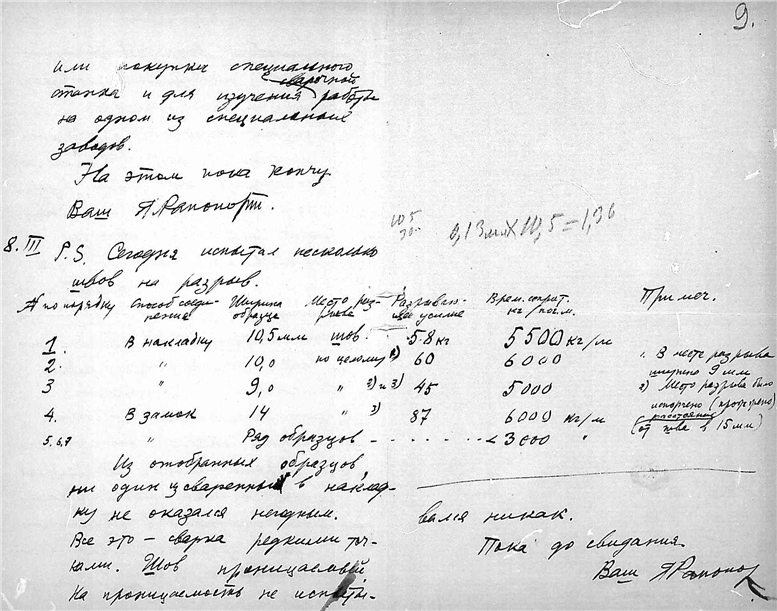 9.
или покупки специального
сварочной
станка и для изучения работы
на одном из специальных
заводов.
На этом пока кончу
Ваш Я Рапопорт.
105
0,13мм X 10,5 = 1,36
8.III P.S. Сегодня испытал несколько
швов на разрыв.
№ по порядку Способ соеди- Ширина Место раз- Разрываю- Врем. сопрот. Примеч.
нения образца рыва щее усилие кг/пог.м.
1. В накладку 10,5мм Шов. 58кг 5500 кг/м
2. " 10,0 по целому 1) 60 6000 1) В месте разрыва
ширина 9 мм
3 " 9,0 " 2) и 3) 45 5000 2) Место разрыва было
испорчено (прогрето)
4. В замок 14 " 3) 87 6000 кг/м расстояние
(от шва в 15мм)
5.6.7 " Ряд образцов - - . . . . . . < 3000 "
Из отобранных образцов,
ни один из сваренных в наклад-
ку не оказался негодным.
Все это – сварка редкими точ-
ками. Шов проницаемый.
На проницаемость не испыты-
вался никак.
Пока до свидания
Ваш Я Рапопорт